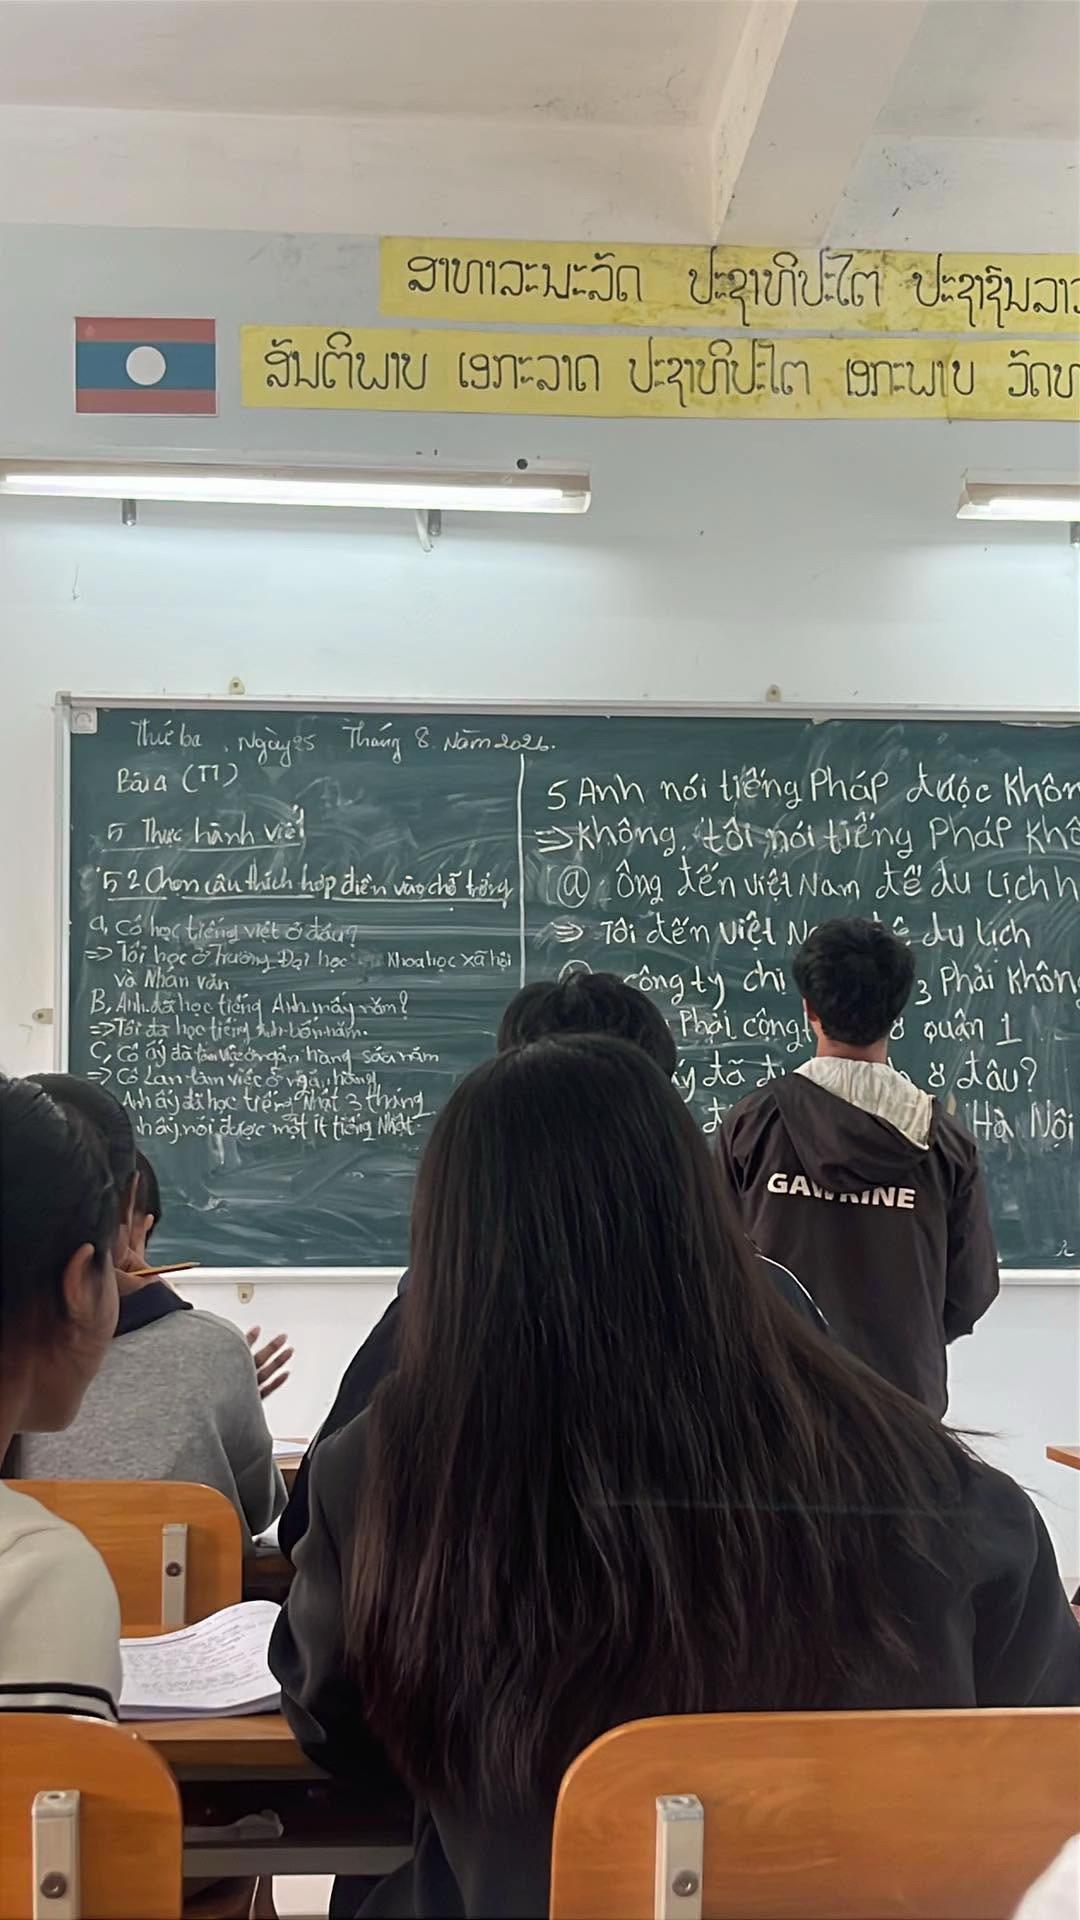 ສາທາລະນະລັດ ປະຊາທິປະໄຕ ປະຊາຊົນລາວ
ສັນຕິພາບ ເອກະລາດ ປະຊາທິປະໄຕ ເອກະພາບ ວັດທ
Thứ ba, Ngày 25 Tháng 8 Năm 2026.
Bài 2 (TT)
5 Thực hành viết
5 2 Chọn câu thích hợp điền vào chỗ trống
a, Cô học tiếng việt ở đâu?
=> Tôi học ở Trường Đại học Khoa học xã hội
và Nhân văn
B, Anh đã học tiếng Anh mấy năm?
=> Tôi đã học tiếng Anh bốn năm.
C, Cô ấy đã làm việc ở ngân hàng sáu năm
=> Cô Lan làm việc ở ngân hàng
Anh ấy đã học tiếng Nhật 3 tháng
hấy nói được một ít tiếng Nhật.
5 Anh nói tiếng Pháp được Khôn
=> Không, tôi nói tiếng Pháp Khô
a Ông đến việt Nam để du Lịch h
=> Tôi đến việt N du Lịch
công ty chị 3 Phải không
Phải công quận 1
đã ở đâu?
Hà Nội
GAWKINE